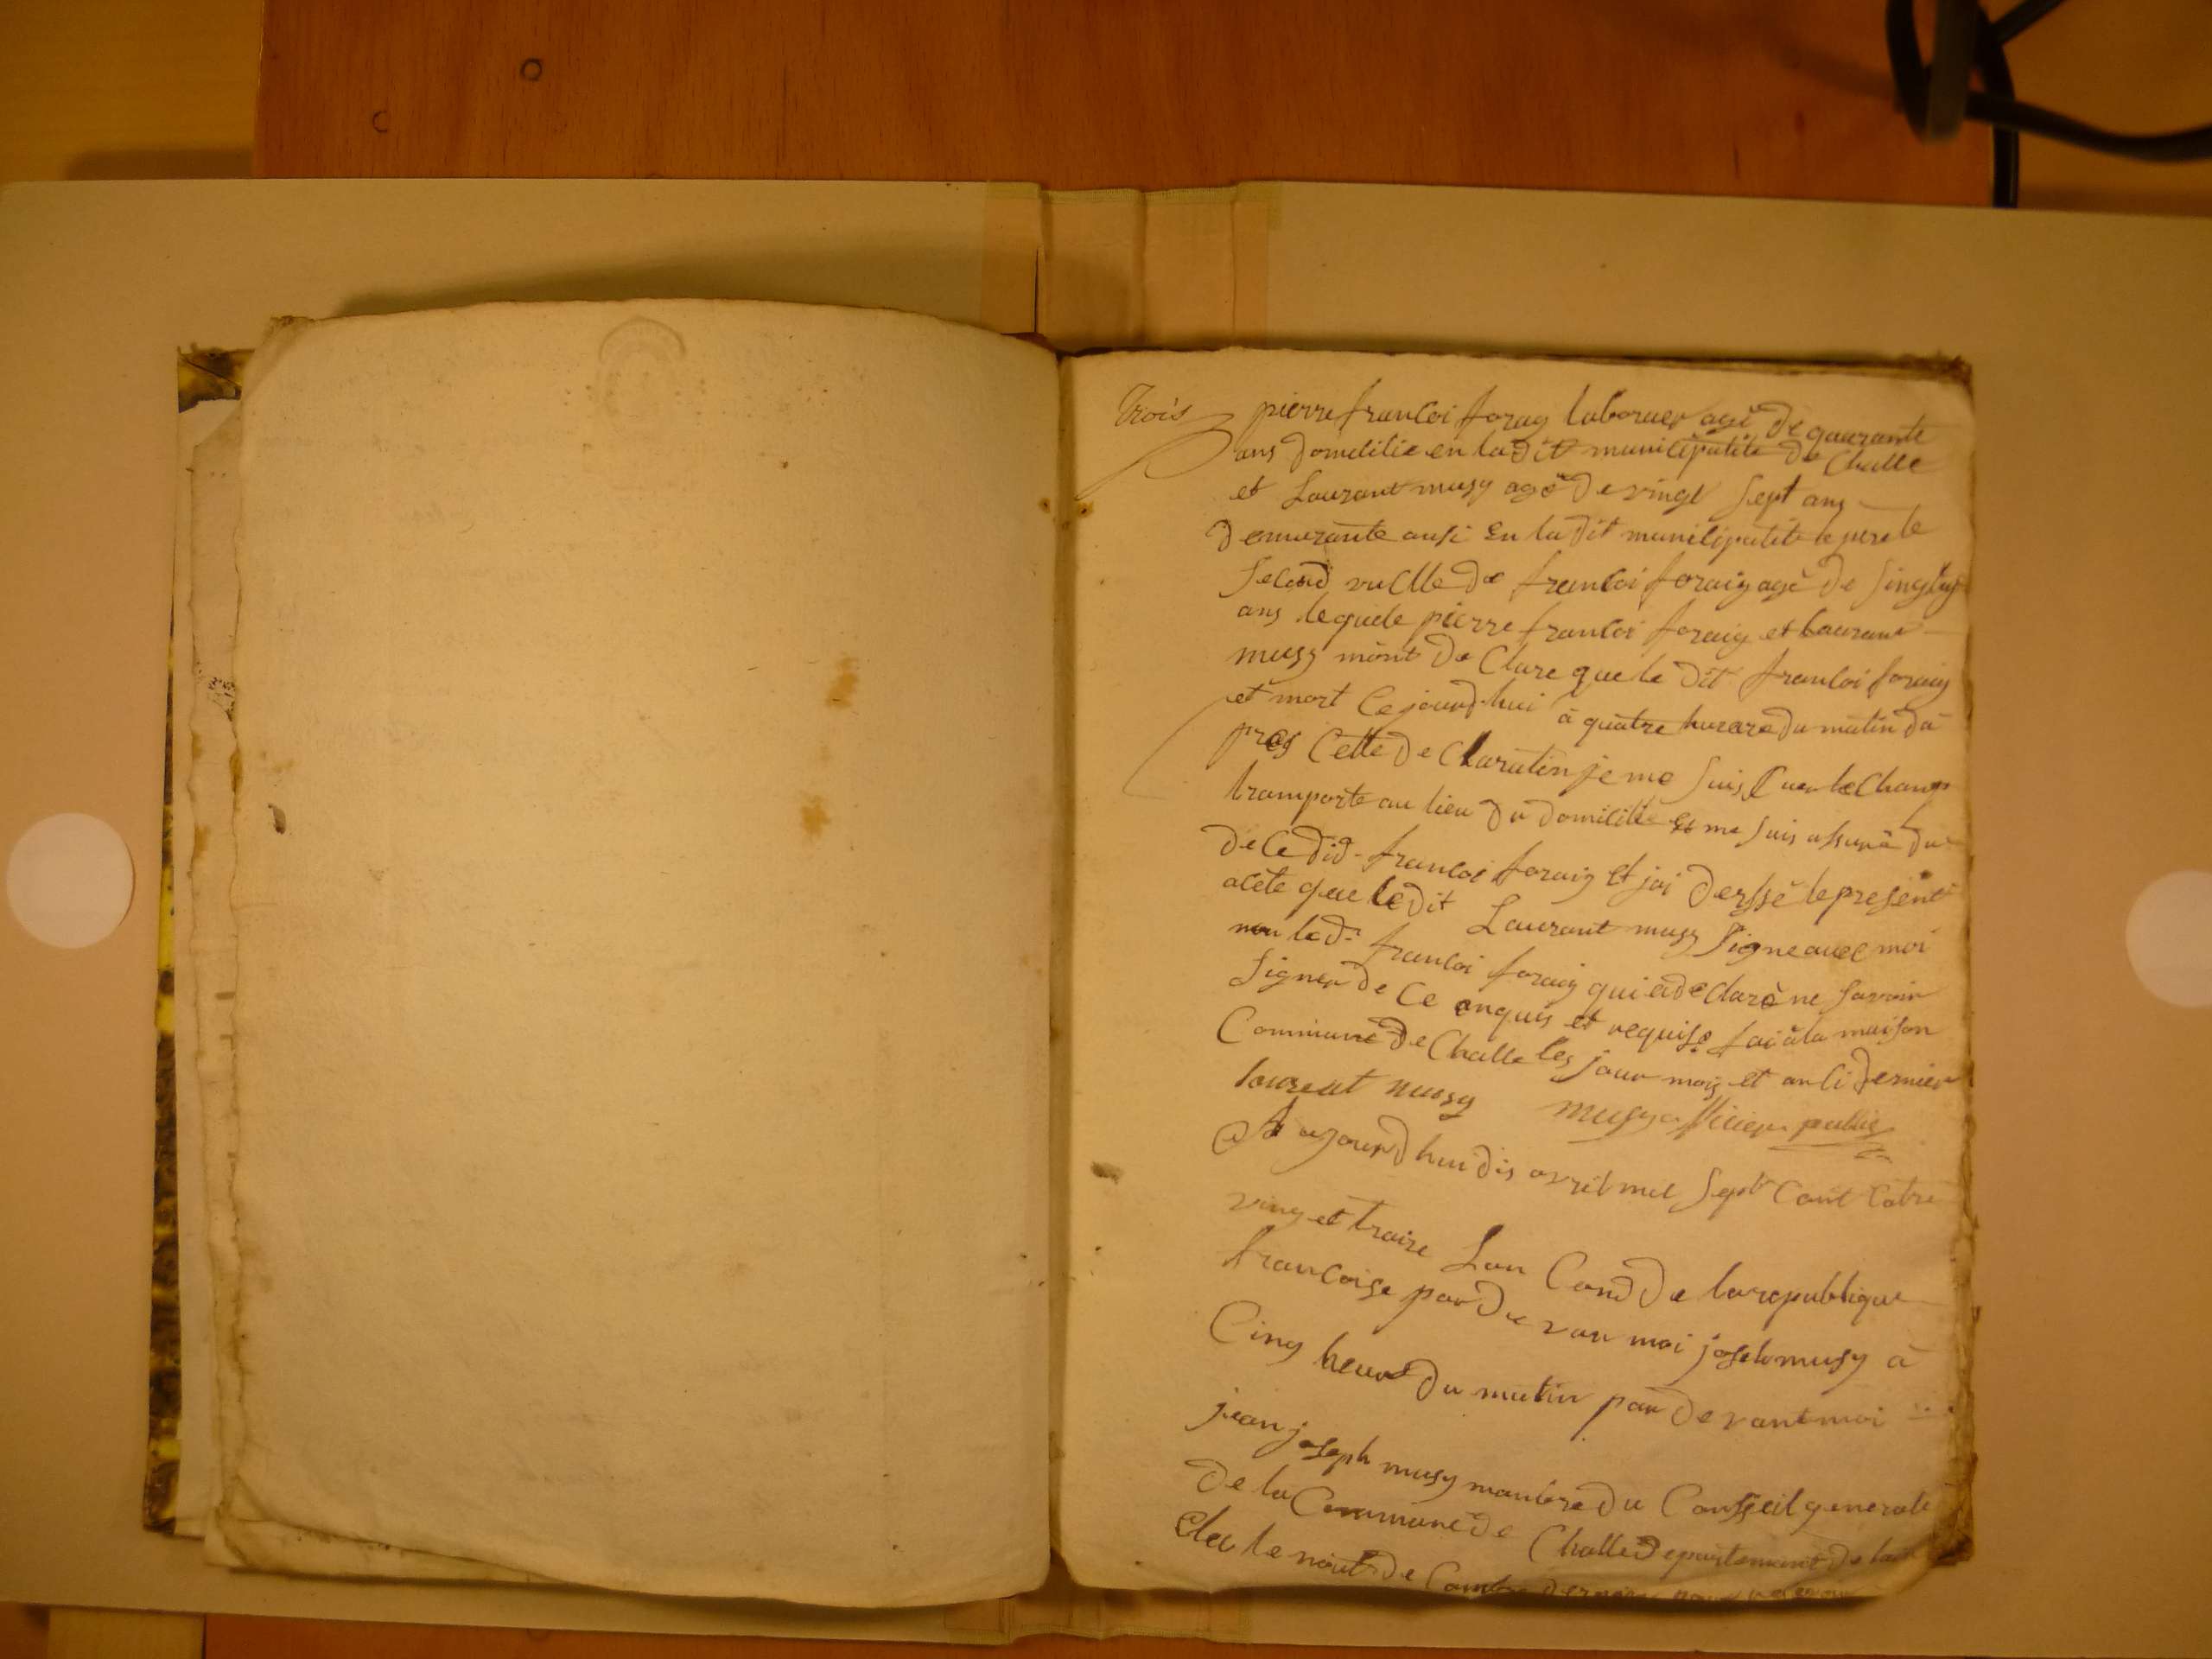 Trois pierre francoi foray laboruer agé de quarante
ans domililie en la dit municipalité de Challe
et Laurant musy agé de vingt sept ans
demurante ausi en la dit municipalité le pere le
second de francoi foraiy agé de
ans lequele pierre francoi foraiy et laurant
musy mont de Clare que le dit francoi foraiy
et mort Ce jourd'hui à quatre hurere du matin dà
pres Cette de Claration je me suis sur le Champ
tramporte au lieu du domicille et me suis assuré du
de Ce did francoi foraiy et jai derssé le present
acete que le dit Laurant musy signe avec moi
non led.t francoi foraiy qui a de Claré ne savoir
signer de Ce enquis et requise fai à la maison
Commune de Challe les jour mois et an Ci dernier
laurent mussy musy officier public
Aujourdhui dis avril mil sept Cent Catre
ving et traize Lan Cond de la republique
francoise par de van moi joseh musy à
Cinq heure du matin par devant moi
jean joseph musy manbre du Consseil generale
de la Commune de Challe Departement de lain
Elu le de